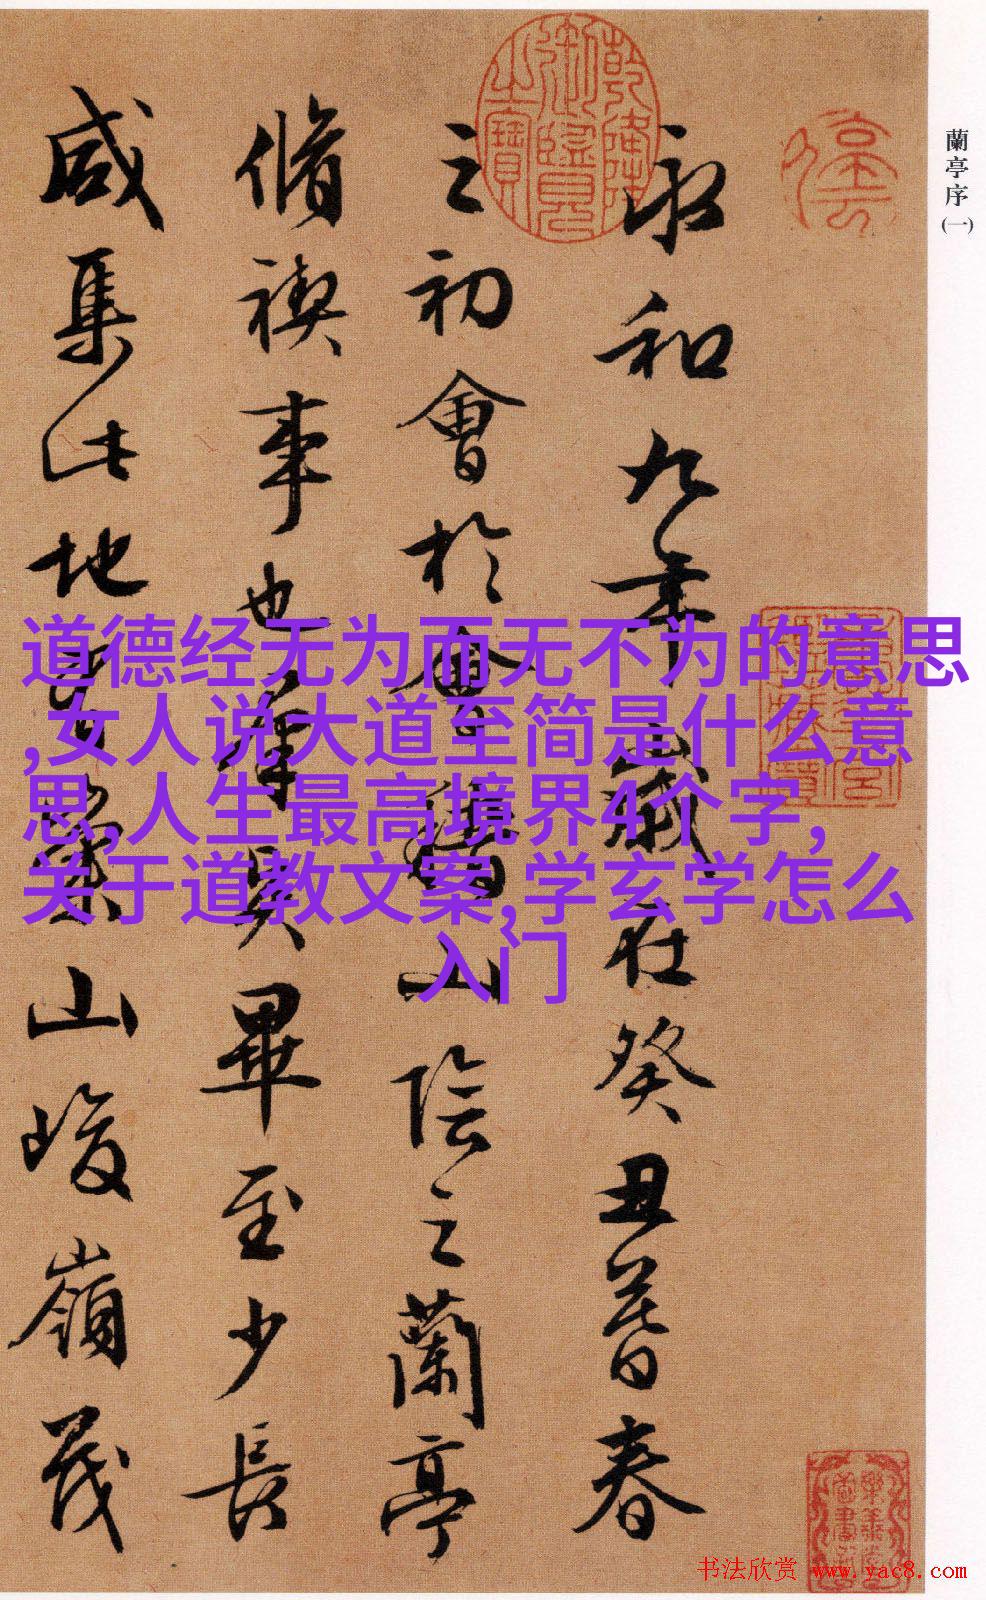 蘭亭序
(一)
永和九年歲在癸丑暮春
之初會於會稽山陰之蘭亭
脩禊事也羣賢畢至少長
咸集此地有崇山峻嶺茂
乾隆御覽之寶
道德经无为而无不为的意思
,女人说大道至简是什么意
思,人生最高境界4个字,
关于道教文案,学玄学怎么
入门
书法欣赏 www.yac8.com